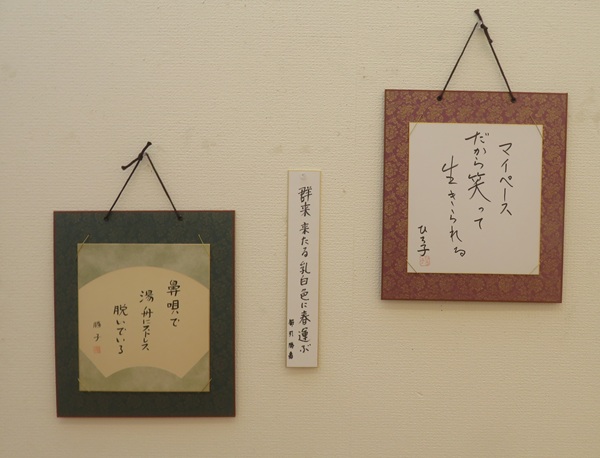 マイペース
だから笑って
生きられる
ひろ子
群来来たる乳白色に春運ぶ
鼻唄で
湯舟にストレス
脱いでいる
勝子